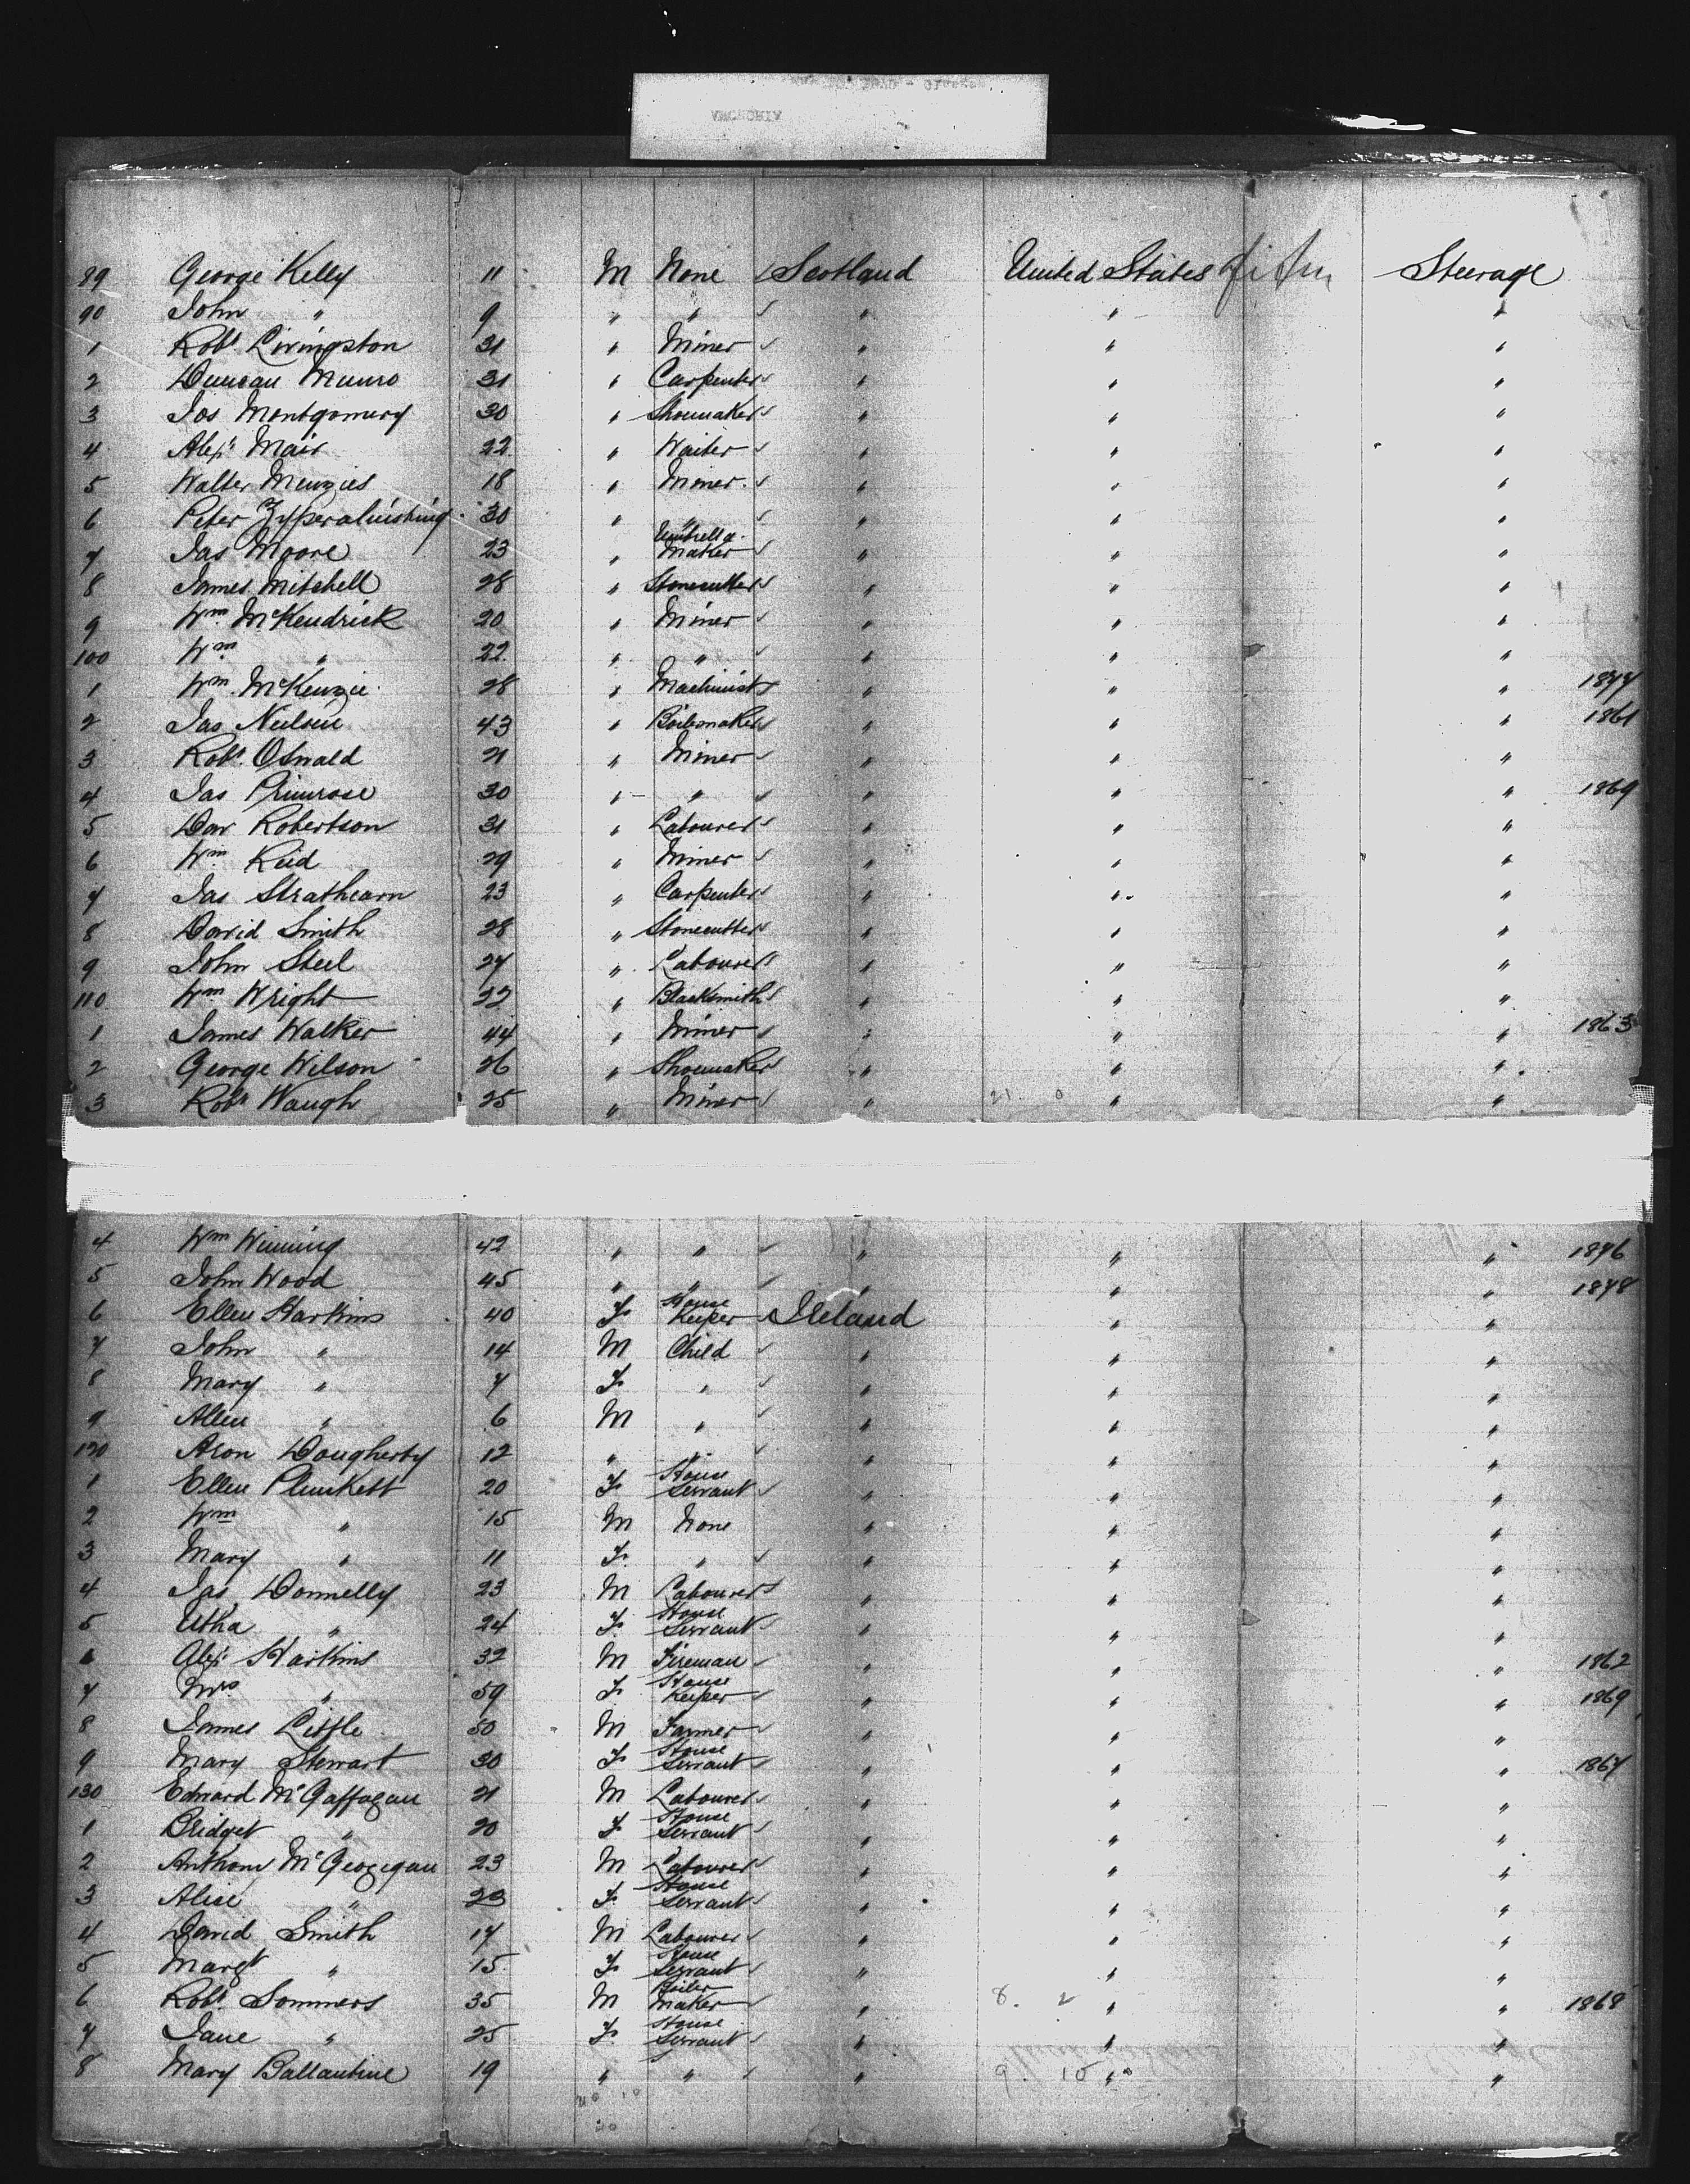 ANCHORIA
89 George Kelly 11 M None Scotland United States Steerage
90 John " 9 " " " " "
1 Robt. Livingston 31 " Miner " " "
2 Duncan Munro 31 " Carpenter " " "
3 Jos Montgomery 30 " Shoemaker " " "
4 Alexr Mair 22 " Waiter " " "
5 Walter Menzies 18 " Miner " " "
6 Peter 30 " " " " "
7 Jas Moore 23 " Umbrella Maker " " "
8 James Mitchell 28 " Stonecutter " " "
9 Wm. McKendrick 20 " Miner " " "
100 Wm " 22 " " " " "
1 Wm. McKenzie 28 " Machinist " " " 1877
2 Jas Neilson 43 " Boilermaker " " " 1861
3 Robt. Oswald 21 " Miner " " "
4 Jas Primrose 30 " " " " " 1869
5 Dav Robertson 31 " Labourer " " "
6 Wm Reid 29 " Miner " " "
7 Jas Strathearn 23 " Carpenter " " "
8 David Smith 28 " Stonecutter " " "
9 John Steel 27 " Labourer " " "
110 Wm Wright 22 " Blacksmith " " "
1 James Walker 44 " Miner " " " 1863
2 George Wilson 26 " Shoemaker " " "
3 Robt Waugh 25 " Miner " 21 0 " "
4 Wm Winning 42 " " " " " 1876
5 John Wood 45 " " " " " 1878
6 Ellen Harkins 40 F House Keeper Ireland " "
7 John " 14 M Child " " "
8 Mary " 7 F " " " "
9 Allen " 6 M " " " "
120 Aron Dougherty 12 " " " " "
1 Ellen Plunkett 20 F House Servant " " "
2 Wm " 15 M None " " "
3 Mary " 11 F " " " "
4 Jas. Donnelly 23 M Labourer " " "
5 Utha " 24 F House Servant " " "
6 Alexr Harkins 32 M Fireman " " " 1862
7 Mrs " 59 F House Keeper " " " 1869
8 James Little 50 M Farmer " " "
9 Mary Stewart 30 F House Servant " " " 1867
130 Edward McGaffagan 21 M Labourer " " "
1 Bridget " 20 F House Servant " " "
2 Anthony McGeozegan 23 M Labourer " " "
3 Alice " 23 F House Servant " " "
4 David Smith 17 M Labourer " " "
5 Margt " 15 F House Servant " " "
6 Robt. Sommers 35 M Boiler Maker " 8. 2 " " 1868
7 Jane " 25 F House Servant " " "
8 Mary Ballantine 19 " " " 9. 15 " "
20 10
20